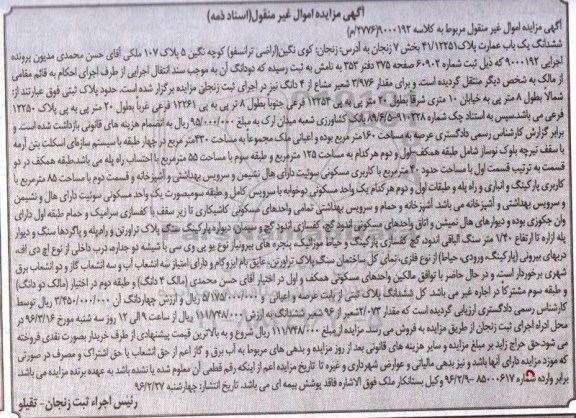 آگهی مزایده اموال غیر منقول(اسناد ذمه)
آگهی مزایده اموال غیر منقول مربوط به کلاسه ۹۰۰۰۱۹۲(۲۷۷۶/م)
ششدانگ یک باب عمارت پلاک ۴۱/۱۲۲۵۱ بخش ۷ زنجان به آدرس: زنجان: کوی نگین(اراضی ترانسفو) کوچه نگین ۵ پلاک ۱۰۷ ملکی آقای حسن محمدی مدیون پرونده
اجرایی ۹۰۰۰۱۹۲ که ذیل ثبت شماره ۶۰۹۰۲ صفحه ۲۷۵ دفتر ۳۵۳ به نامش به ثبت رسیده که دودانگ آن به موجب سند انتقال اجرایی از طرف اجرای احکام به قائم مقامی
از مالک به شخص دیگر منتقل گردیده است. و برای مقدار ۳/۹۷۶ شعیر مشاع از ۴ دانگ نیز در اجرای ثبت زنجان مزایده برگزار شده است. حدود پلاک ثبتی فوق عبارتند از:
شمالا بطول ۸ متر پی به خیابان ۱۰ متری شرقا بطول ۲۰ متر پی به پی ۱۲۲۵۲ فرعی جنوبا بطول ۸ تر پی به پی ۱۲۲۶۱ فرعی غربا بطول ۲۰ متر پی به پی پلاک ۱۲۲۵۰
فرعی می باشد.سپس به استناد چک شماره ۹۱۰۳۲۸-۸۹/۶/۵ بانک کشاورزی شعبه میدان ارک به مبلغ ۹۵/۰۰۰/۰۰۰ ریال به انضمام هزینه های قانونی بازداشت شده است. و
برابر گزارش کارشناس رسمی دادگستری عرصه به مساحت ۱۶۰ متر مربع بوده و اعیانی ملک مجموعا به مساحت ۴۳۰متر مربع در چهار طبقه با سیستم سازه‌ای اسکلت بتن آرمه
با سقف تیرچه بلوک نوساز شامل طبقه همکف، اول و دوم هرکدام به مساحت ۱۲۵ مترمربع و طبقه سوم با مساحت ۵۵ مترمربع با احتساب راه پله می باشد.طبقه همکف در دو
قسمت به ترتیب قسمت اول با مساحت حدود ۴۰ مترمربع با کاربری مسکونی سوئیت دارای هال نشیمن و سرویس بهداشتی و آشپزخانه و قسمت دوم با مساحت ۸۵ مترمربع با
کاربری پارکینگ و انباری و راه پله و طبقات اول و دوم هرکدام یک واحد مسکونی دوخوابه با سرویس کامل و طبقه سوم بصورت یک واحد مسکونی سوئیت دارای هال و نشیمن
و سرویس بهداشتی و آشپزخانه می باشد. آشپزخانه و حمام و سرویس بهداشتی تمامی واحدهای مسکونی کاشیکاری تا زیر سقف با کفسازی سرامیک و حمام طبقه اول دارای
وان جکوزی بوده و دیوارهای هال نمیشن و اتاق واحدهای مسکونی اندود گچ، کفسازی اندود گچ و سیمان، دیواره پارکینگ سنگ پلاک تراورتن و راه‌پله و پاگردها سنگ و دیوار
پله ازاره تا ارتفاع ۱/۴۰ متر سنگ الباقی اندود گچ کفسازی پارکینگ و حیاط موزائیک، پنجره های بیرونیاز نوع یو پی وی سی با شیشه دو جداره، درب داخلی از نوع اچ دی اف،
دربهای بیرونی (پارکینگ، ورودی، حیاط) از نوع فلزی، نمای کل ساختمان سنگ پلاک تراورتن، عایق بام ایزوگام و دارای امتیاز سه انشعاب آب و سه انشعاب گاز و دو انشعاب برق
شهری برخوردار است. و در حال حاضر با توافق مالکین واحدهای مسکونی همکف و اول در اختیار آقای حسن محمدی (مالک ۴ دانگ) و طبقه دوم در اختیار (مالک دو دانگ)
و طبقه سوم مشترکا در اجاره غیر می باشد. کل ششدانگ پلاک ثبتی از بابت عرصه و اعیانی و ۵/۱۷۵/۰۰۰/۰۰۰ ریال و ارزش چهاردانگ آن ۳/۴۵۰/۰۰۰/۰۰۰ ریال توسط
کارشناس رسمی دادگستری ارزیابی گردیده است که مقدار ۲/۰۷۳شعیر از ۹۶ شعیر ششدانگ به ارزش ۱۱۱/۷۴۸/۰۰۰ ریال از ساعت ۹ الی ۱۲ روز سه شنبه مورخ ۹۶/۳/۱۶ در
محل اداه اجرای ثبت زنجان از طریق مزایده به فروش می رسد. مزایده از مبلغ ۱۱۱/۷۴۸/۰۰۰ ریال شروع و به بالاترین قیمت پیشنهادی از طرف خریدار بصورت نقدی فروخته
می شود،حق حراج زاید بر مبلغ مزایده و سایر هزینه های قانونی بعد از روز مزایده و بدهی های مربوط به آب برق و گاز اعم از حق انشعاب یا حق اشتراک و مصرف در صورتی
که مورد مزایده دارای آنها باشد، و نیز بدهی مالیاتی و عوارض شهرداری و غیره تا تاریخ مزایده اعم از اینکه رقم قطعی آن معلوم شده یا نشده باشد به عهده برنده مزایده می باشد.
برابر وارده شماره ۸۵۰۰۰۶۱۷-۹۶/۲/۹ وکیل بستانکار ملک فوق الاشاره فاقد پوشش بیمه ای می باشد. تاریخ انتشار: چهارشنبه ۹۶/۲/۲۷
رئیس اجراء ثبت زنجان- تقیلو